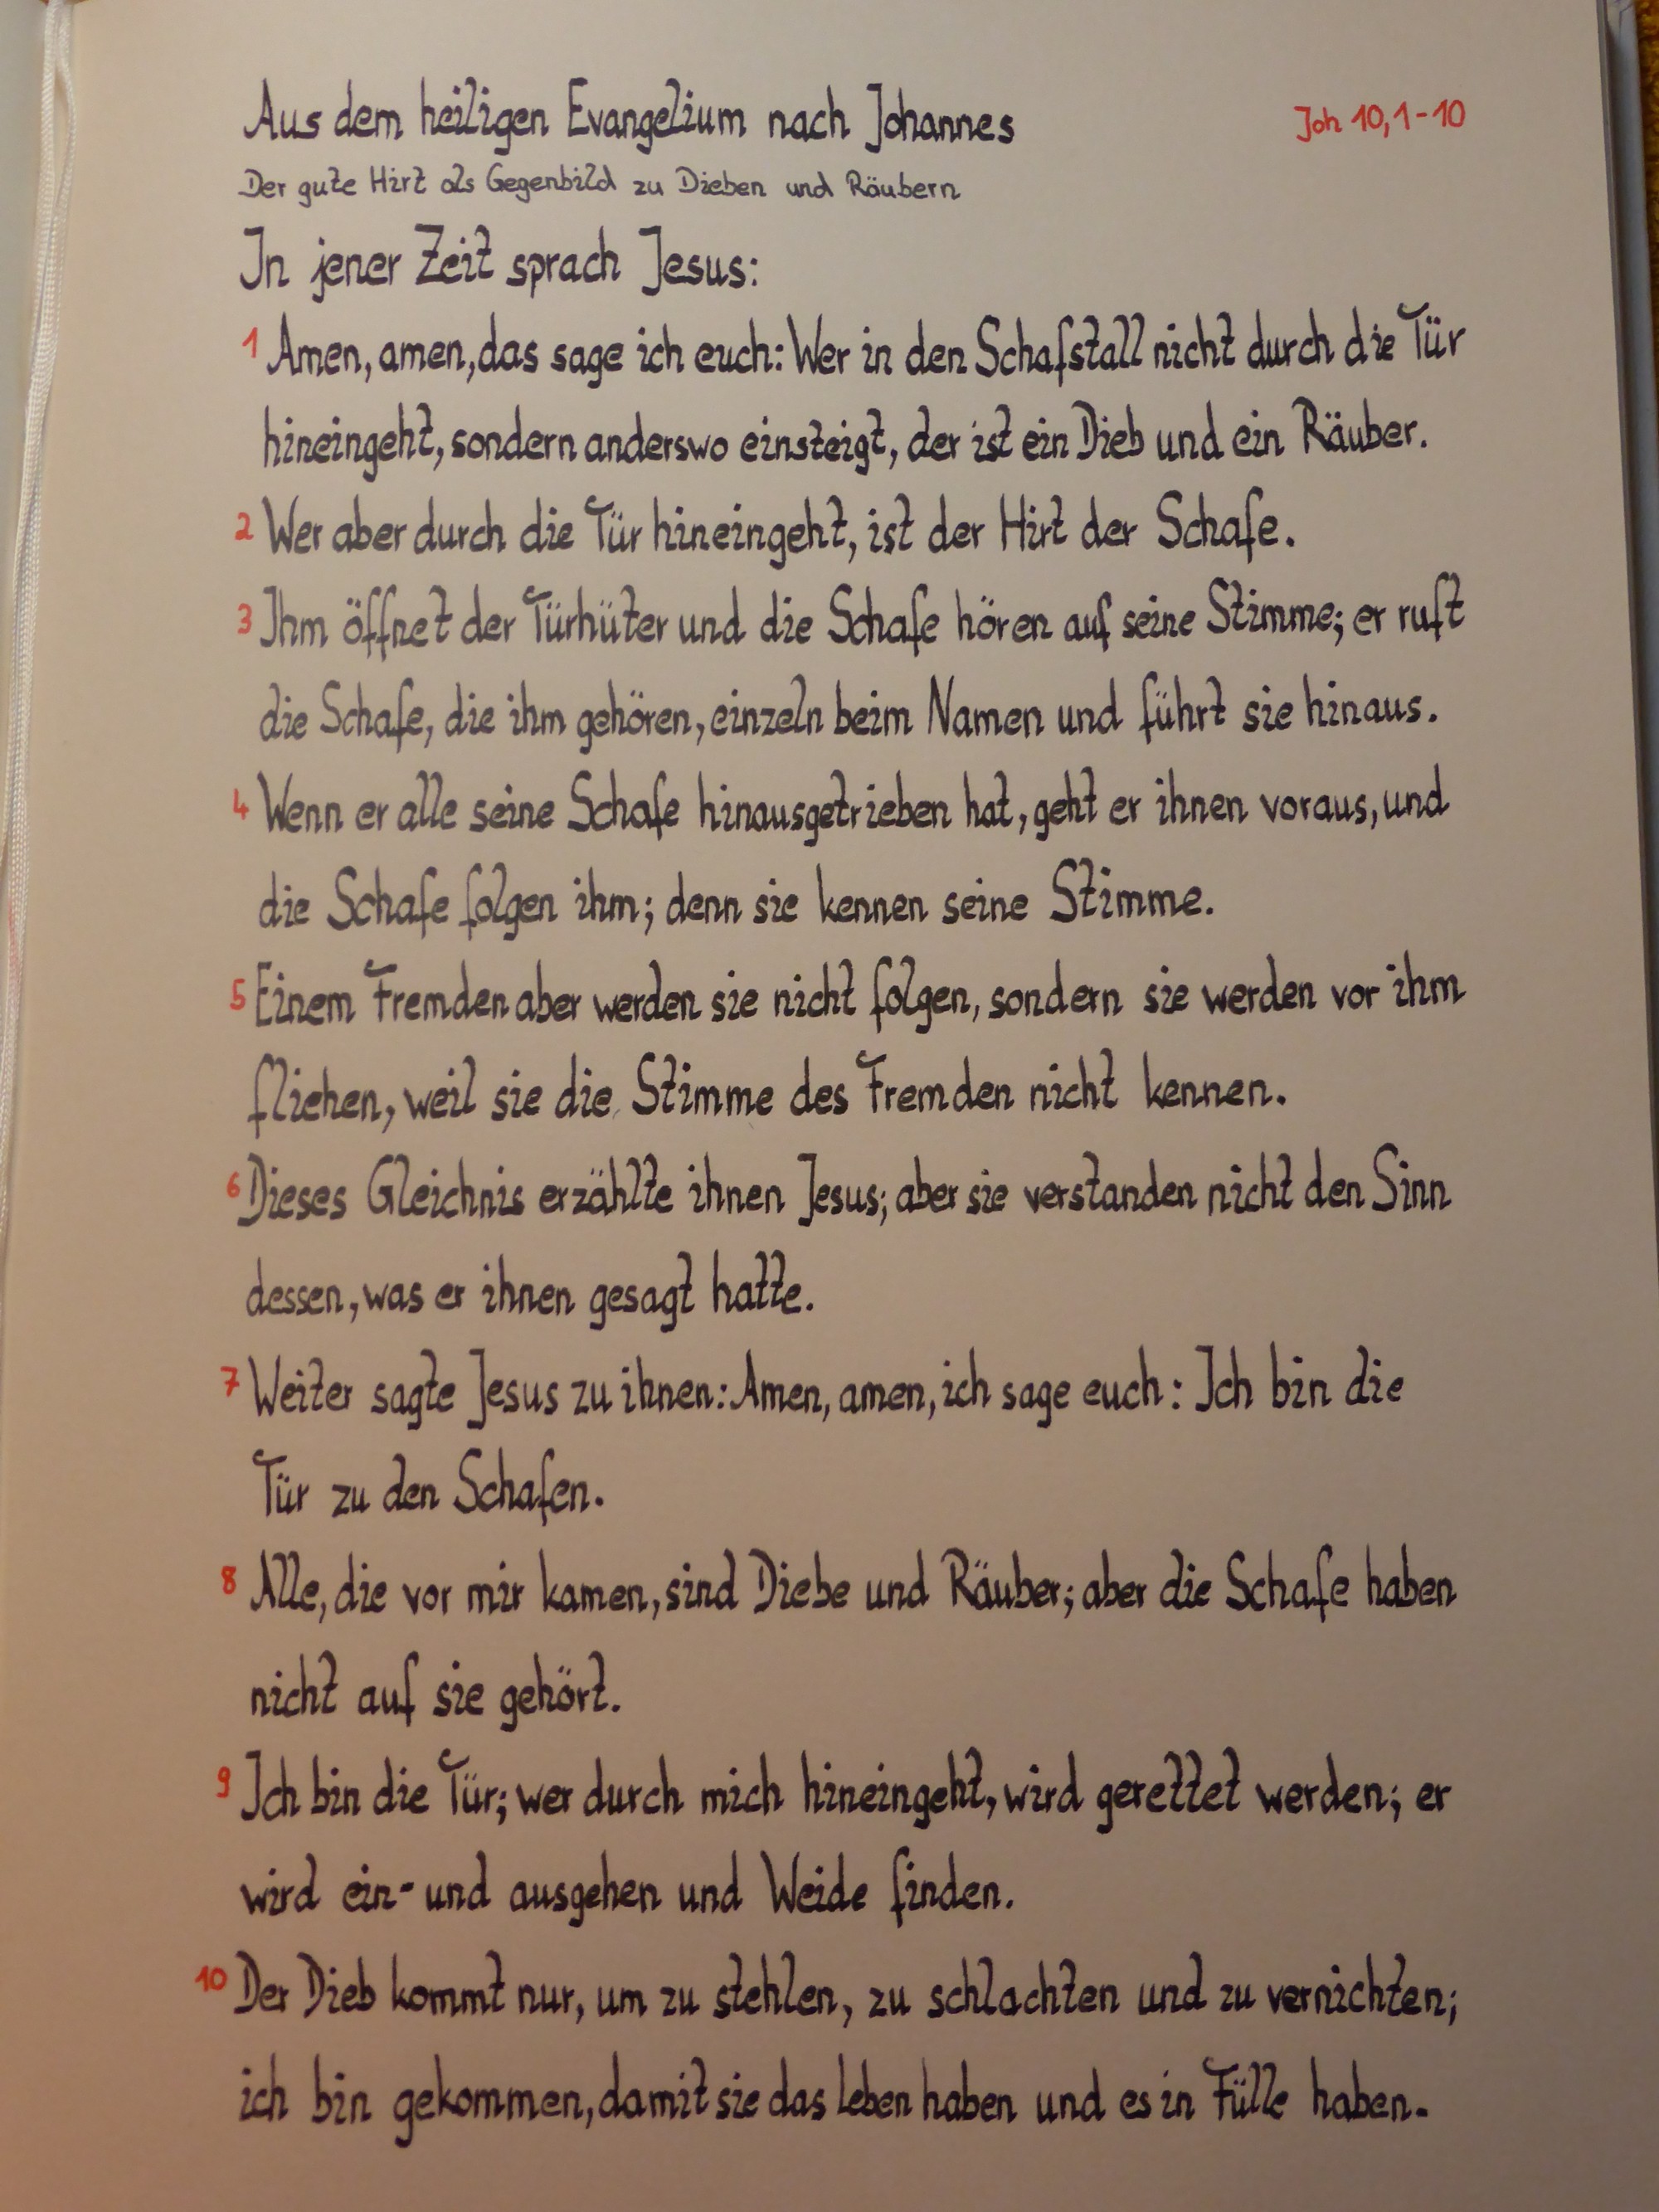 Aus dem heiligen Evangelium nach Johannes Joh 10,1-10
Der gute Hirt als Gegenbild zu Dieben und Räubern
In jener Zeit sprach Jesus:
1 Amen, amen, das sage ich euch: Wer in den Schafstall nicht durch die Tür
hineingeht, sondern anderswo einsteigt, der ist ein Dieb und ein Räuber.
2 Wer aber durch die Tür hineingeht, ist der Hirt der Schafe.
3 Ihm öffnet der Türhüter und die Schafe hören auf seine Stimme; er ruft
die Schafe, die ihm gehören, einzeln beim Namen und führt sie hinaus.
4 Wenn er alle seine Schafe hinausgetrieben hat, geht er ihnen voraus, und
die Schafe folgen ihm; denn sie kennen seine Stimme.
5 Einem Fremden aber werden sie nicht folgen, sondern sie werden vor ihm
fliehen, weil sie die Stimme des Fremden nicht kennen.
6 Dieses Gleichnis erzählte ihnen Jesus; aber sie verstanden nicht den Sinn
dessen, was er ihnen gesagt hatte.
7 Weiter sagte Jesus zu ihnen: Amen, amen, ich sage euch: Ich bin die
Tür zu den Schafen.
8 Alle, die vor mir kamen, sind Diebe und Räuber; aber die Schafe haben
nicht auf sie gehört.
9 Ich bin die Tür; wer durch mich hineingeht, wird gerettet werden; er
wird ein- und ausgehen und Weide finden.
10 Der Dieb kommt nur, um zu stehlen, zu schlachten und zu vernichten;
ich bin gekommen, damit sie das Leben haben und es in Fülle haben.